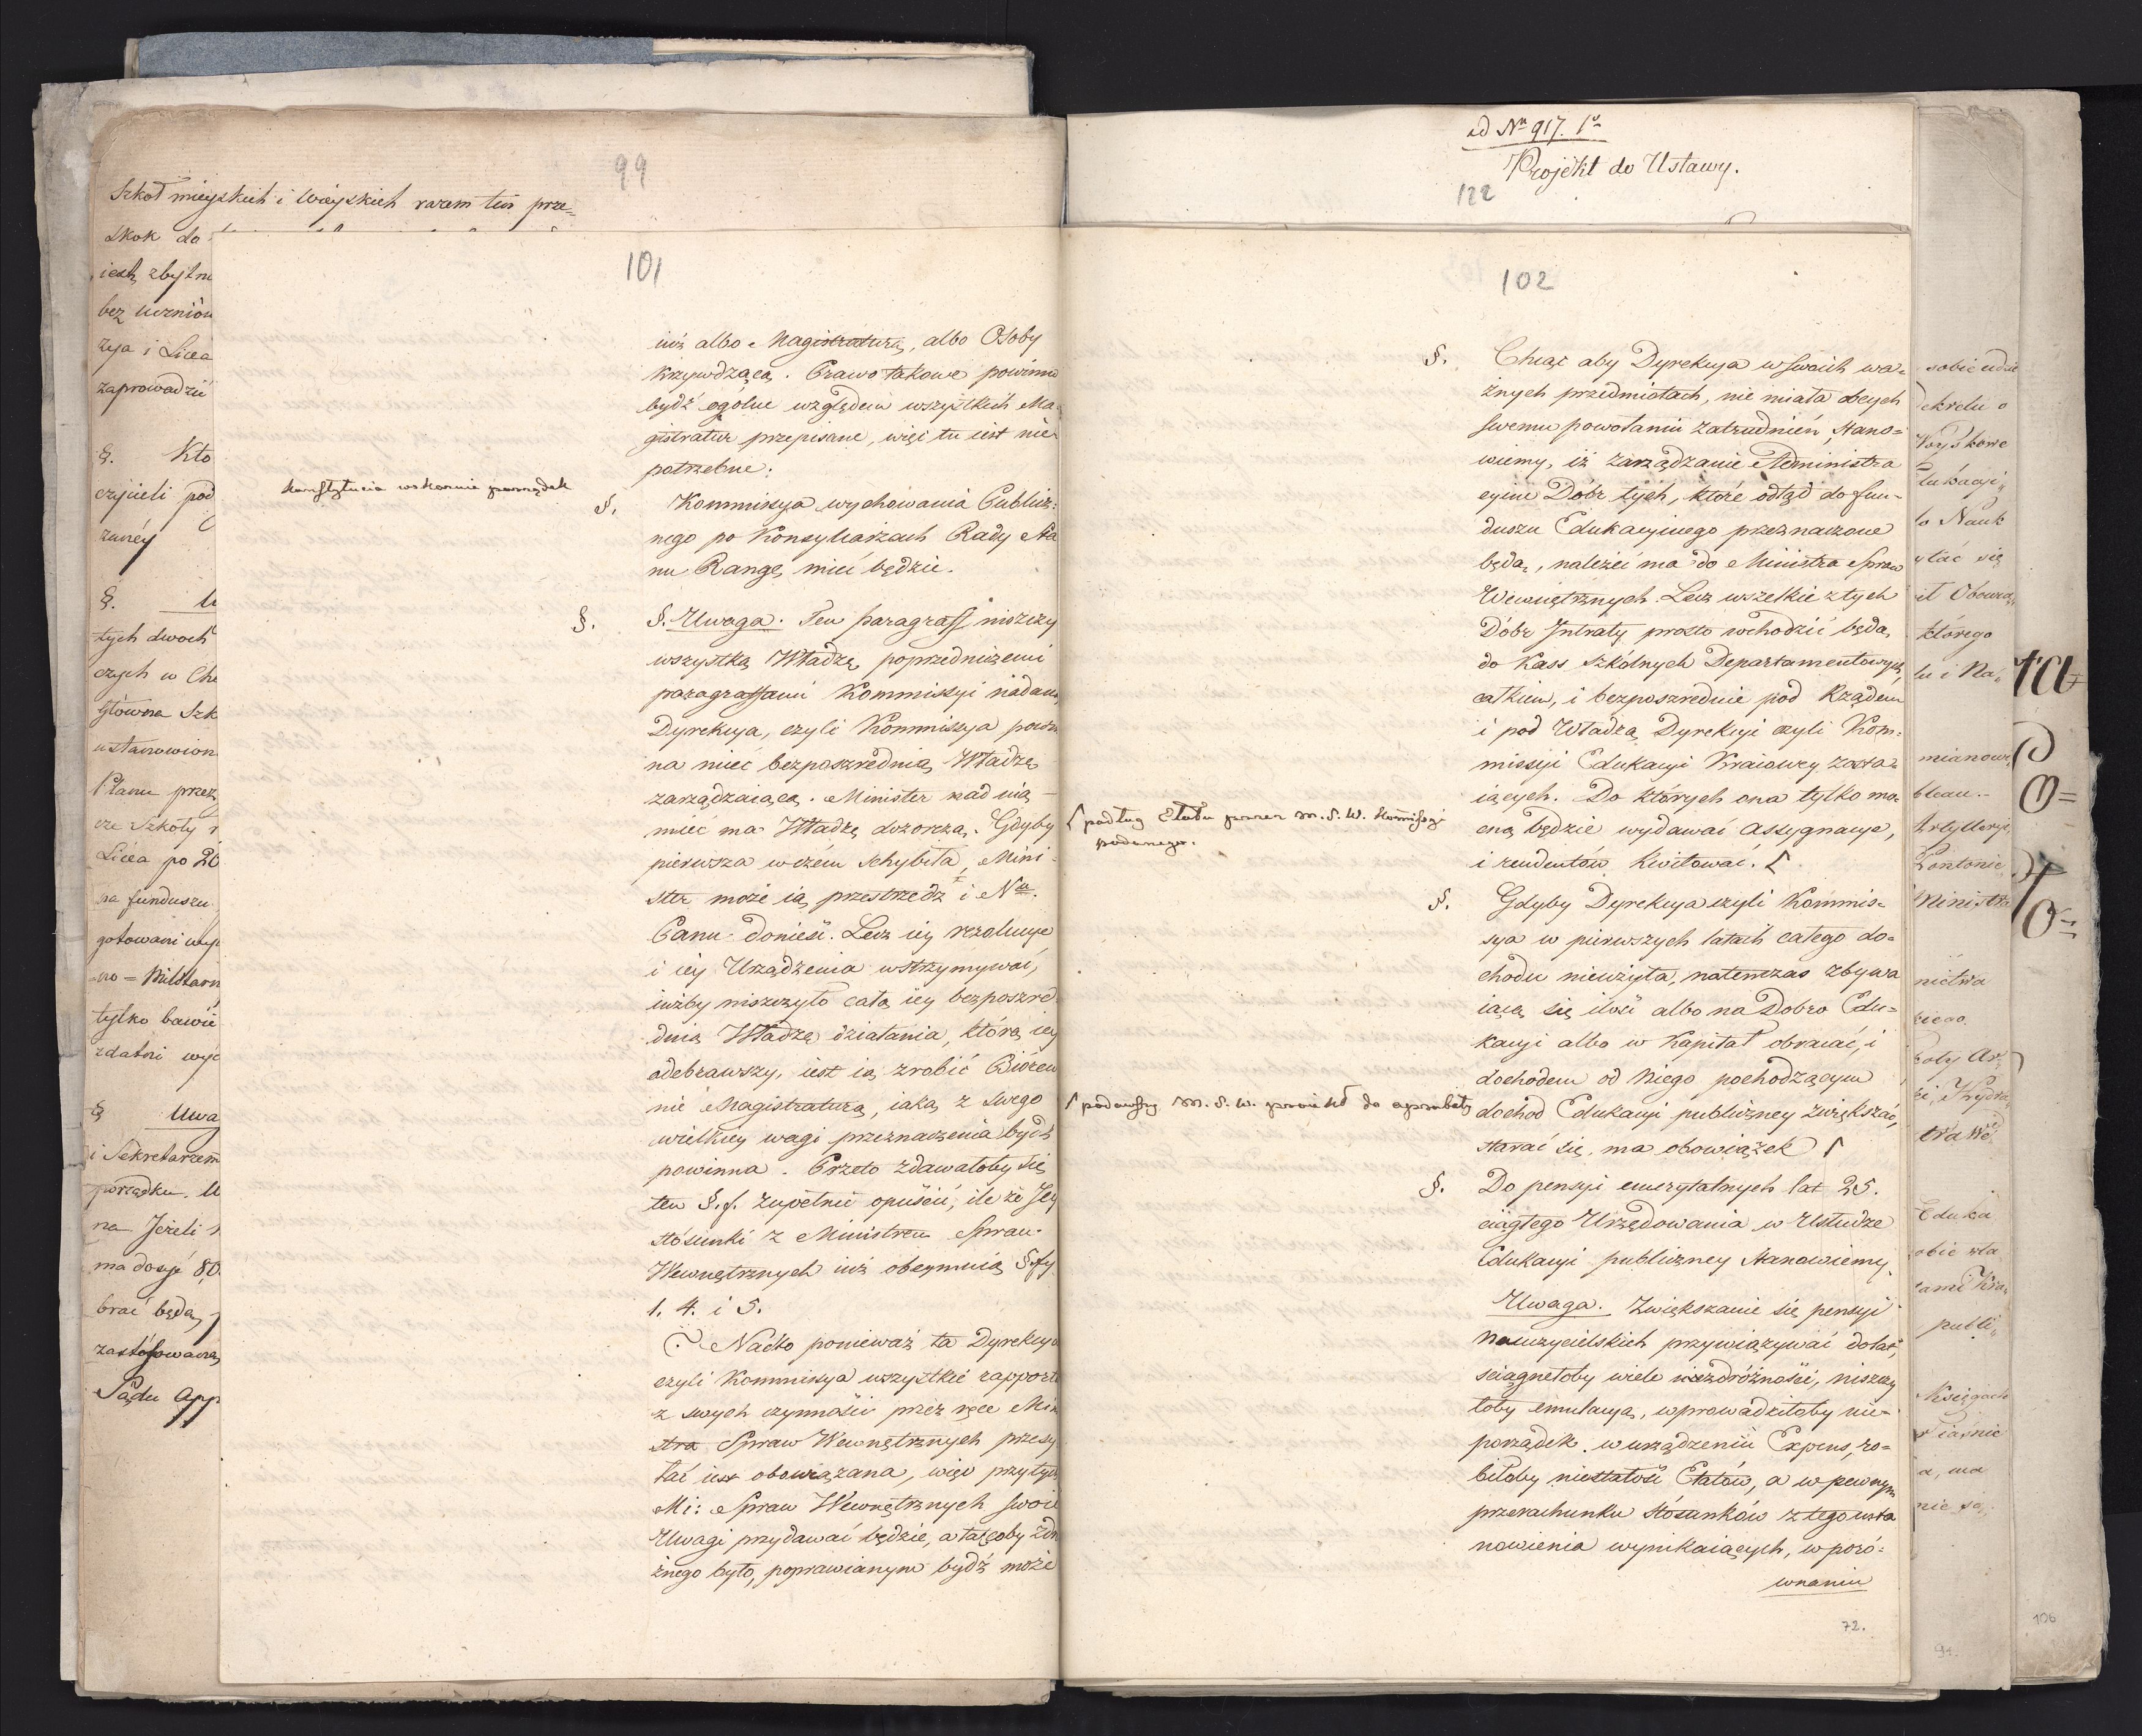 99
Szkoł mieyskich i Wieyskich razem ten prze=
skok do
iest zbytni
bez Uczniów
zya i Licea
zaprowadzić
§. Kto
czycieli pod
§.
tych dwoch
czych w
Główna Szk
ustanowion
Planu przez
cze Szkoły
Licea po 20
na funduszu
gotowani
no = Militarn
tylko bawić
zdatni wyc
§ Uwa
i Sekretarzem
porządku.
na Jeżeli
ma dosyć 80
brać będą,
zastósowana
Sądu App
101
iuż albo Magistraturą, albo Osoby
krzywdzącą. Prawo takowe powinno
bydź ogólne względem wszystkich Ma-
gistratur przepisane, więc tu iest nie-
potrzebne.
Konstytucia wskazuie porządek
§. Kommissya wychowania Publicz-
nego po Konsyliarzach Rady Sta
nu Rangę mieć będzie.
§. §. Uwaga. Ten paragraff niszczy
wszystką Władzę poprzedniczemi
paragraffami Kommissyi nadaną
Dyrekcya, czyli Kommissya powin
na mieć bezpośrzednią Władzę
zarządzaiącą. Minister nad nią
mieć ma Władzę dozorczą. Gdyby
pierwsza w czém schybiła, Mini-
ster może ią przestrzedz i Nu.
Panu donieść. Lecz iey rezolucye
i iey Urządzenia wstrzymywać,
iużby niszczyło całą iey bezpośrzed
dnią Władzę działania, którą iey
odebrawszy, iest ią zrobić Biórem
nie Magistraturą, iaką z swego
wielkiey wagi przeznaczenia bydź
powinna. Przeto zdawałoby się
ten §.f. zupełnie opuścić, ile że Jey
stósunki z Ministrem Spraw
Wewnętrznych iuż obeymuią §.fy
1. 4. i 5.
Nadto ponieważ ta Dyrekcya
czyli Kommissya wszystkie rapporta
z swych czynności przez ręce Mini
stra Spraw Wewnętrznych przesy
łać iest obowiązana, więc przy tych
Mi: Spraw Wewnętrznych swoie
Uwagi przydawać będzie, a tak coby zdro
żnego było, poprawianym bydź może
ad Nu 917. 1o
Projekt do Ustawy.
122
102
§. Chcąc aby Dyrekcya w swoich wa=
żnych przedmiotach, nie miała obcych
swemu powołaniu zatrudnień, stano=
wiemy, iż zarządzanie Administra
cyine Dóbr tych, które odtąd do fun-
duszu Edukacyinego przeznaczone
będą, należeć ma do Ministra Spraw
Wewnętrznych. Lecz wszelkie z tych
Dóbr Intraty prosto wchodzić będą
do Kass szkólnych Departamentowych,
całkiem, i bezpośrzednie pod Rządem
i pod Władzą Dyrekcyi czyli Kom:
missyi Edukacyi Kraiowey zosta-
iących. Do których ona tylko mo-
cną będzie wydawać Assygnacye,
i rendentów kwitować.
podług Etatu przez M. S. W. Kommissyi
podanego.
§. Gdyby Dyrekcya czyli Kommis-
sya w pierwszych latach całego do-
chodu nieużyła, natenczas zbywa
iącą się ilość albo na Dobro Edu-
kacyi albo w Kapitał obracać, i
dochodem od Niego pochodzącym
dochod Edukacyi publiczney zwiększać,
starać się, ma obowiązek
podawszy M. S. W. proiekt do aprobaty
§. Do pensyi emerytalnych lat 25.
ciągłego Urzędowania w Usłudze
Edukacyi publiczney stanowiemy.
Uwaga. Zwiększanie się pensyi
nauczycielskich przywiązywać do lat,
sciągnełoby wiele niezdróżności, niszczy
łoby emulacyą, wprowadziłoby nie-
porządek w urządzeniu Expens, ro-
biłoby niestałość Etatów, a w pewnym
przerachunku stósunków z tego usta
nowienia wynikaiących, w poró-
wnaniu
72.
sobie udzie
dekretu o
Woyskowe
Edukacyi
do Nauk
ytać się
którego
lu i Na=
mianow
bleau.
Artyllerii
Ministra
nictwa
Eduka
obie wła
publi=
Księgach
a, ma
nie są
94.
106